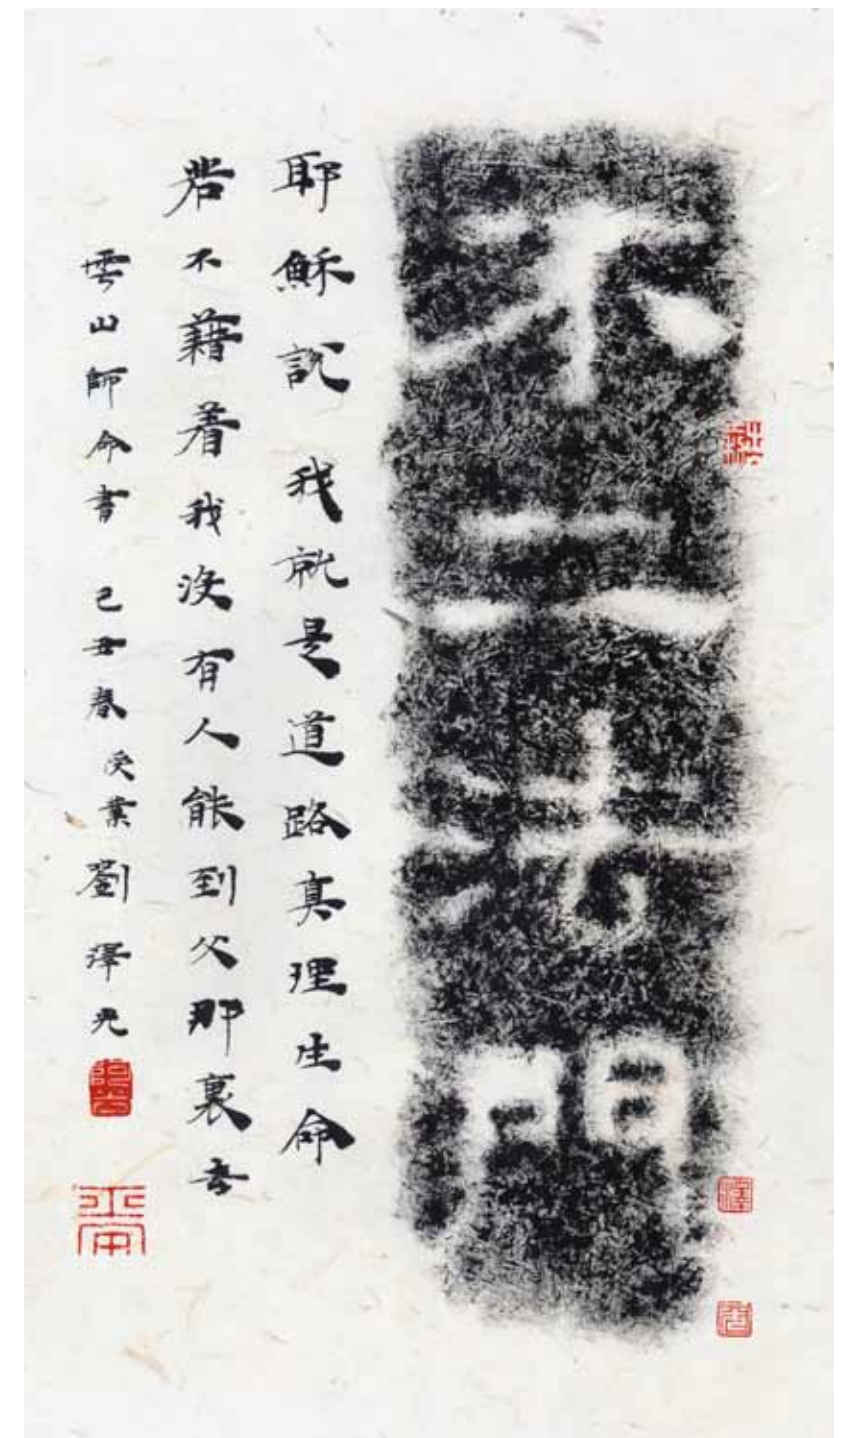 不二法門
耶穌説我就是道路真理生命
若不藉着我沒有人能到父那裏去
雲山師命書 己丑春 受業劉澤光